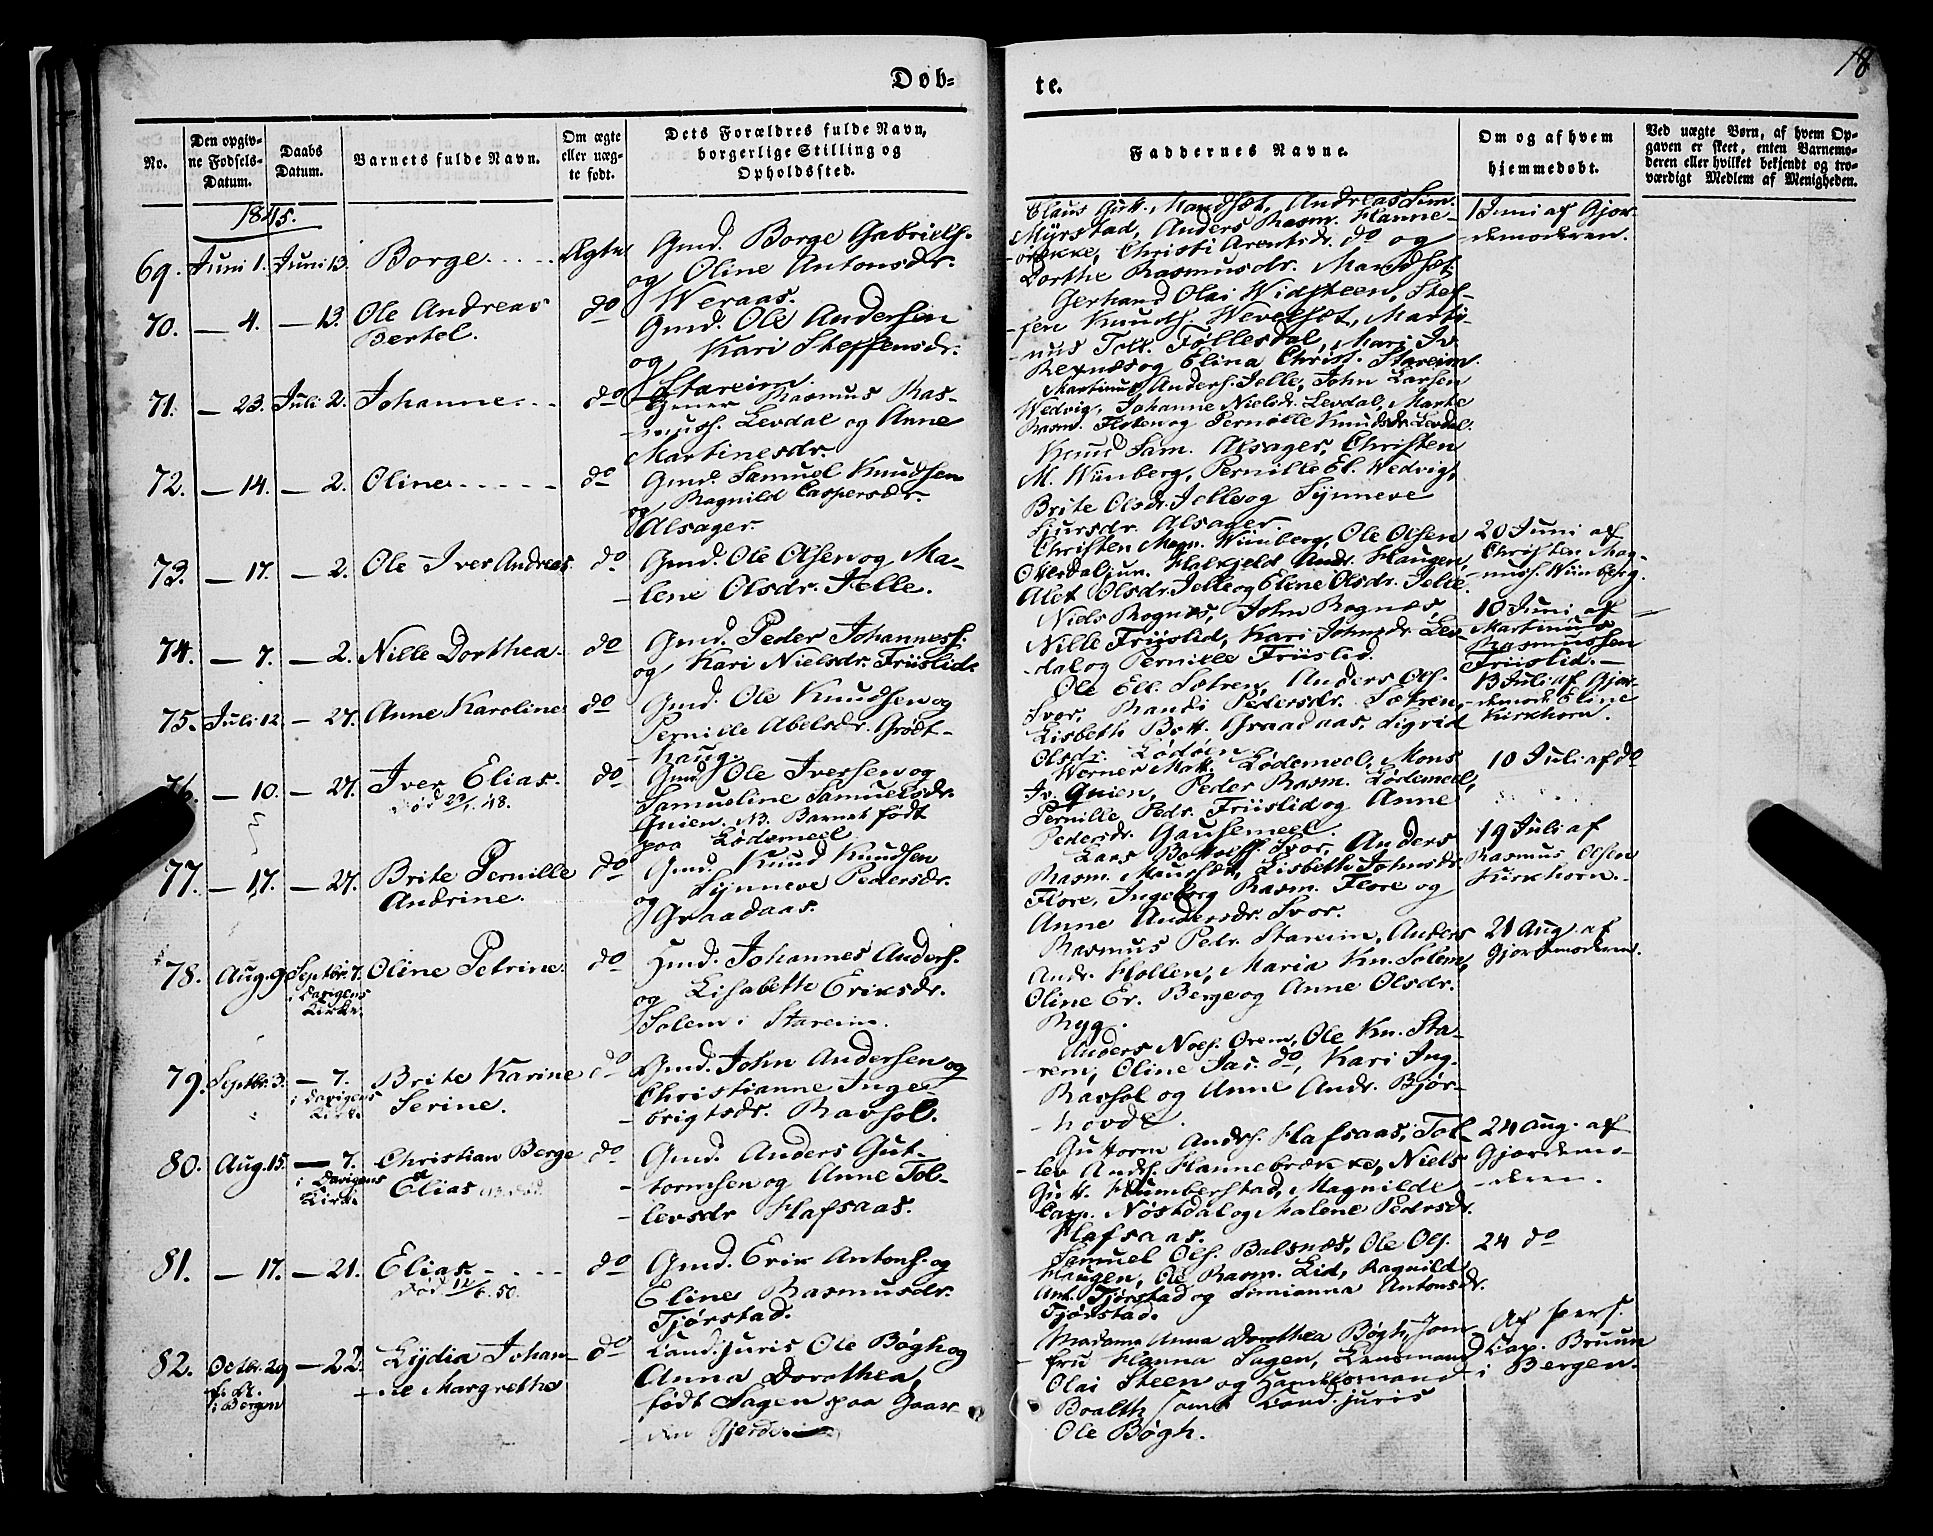 18
Døb-
te.
No.
Den opgiv-
ne Fødsels-
Datum.
Daabs
Datum.
Barnets fulde Navn.
Om ægte
eller uæg-
te født.
Dets Forældres fulde Navn,
borgerlige Stilling og
Opholdssted.
Faddernes Navne.
Om og af hvem
hjemmedøbt.
Ved uægte Børn, af hvem Op-
gaven er skeet, enten Barnemo-
deren eller hvilket bekjendt og tro-
værdigt Medlem af Menigheden.
1845.
69. Juni 1. Juni 13. Borge Ægte
Gmd. Borge Gabriels.
og Oline Antonsdr.
Weraas.
Claus Gutt. Mandsæt, Andreas Sim.
Myrstad, Anders Rasm. Hanne-
brekke, Christi Arentsdr. do og
Dorthe Rasmusdr. Mandsæt
1 Juni af Gjor-
demoderen.
70. — 4. — 13. Ole Andreas
Bertel.
do
Gmd. Ole Andersen
og Kari Steffensdr.
Stareim.
Gerhard Olai Widsteen, Stef-
fen Knuds. Wevelsæt, Marti-
nus Toll. Føllesdal, Mari Iv
Rexnæs og Elina Christ. Stareim.
71. — 23. Juli 2. Johanne
do
Rasmus Ras-
muss. Levdal og Anne
Martinesdr.
Martinus Anders. Jelle, John Larsen
Wedvig, Johanne Nielsdr. Levdal, Marte
Rasm. Floten og Pernille Knudsdr. Levdal.
72. — 14. — 2. Oline
do
Gmd. Samuel Knudsen
og Ragnild Caspersdr.
Alsager.
Knud Sam. Alsager, Christen
M. Wünberg, Pernille El. Wedvig,
Brite Olsdr. Jelle og Synneve
Sjursdr. Alsager.
73. — 17. — 2. Ole Iver Andreas
do
Gmd. Ole Olsen og Ma-
lene Olsdr. Jelle.
Christen Magn. Wünberg, Ole Olsen
Otterdal jun. Halkjeld Andr. Haugen,
Alet Olsdr. Jelle og Eline Olsdr. Jelle
20 Juni af
Christen Mag-
nuss. Wünberg.
74. — 7. — 2. Nille Dorthea
do
Gmd. Peder Johanness.
og Kari Nielsdr. Friislid
Niels Rognæs, John Rognæs,
Nille Friislid, Kari Johnsdr. Lev-
dal og Pernille Friislid.
10 Juni af
Martinus
Rasmussen
Friislid.
75. Juli 12. — 27. Anne Karoline
do
Gmd. Ole Knudsen og
Pernille Abelsdr. Grodt-
haug.
Ole Ell. Sætren, Anders Ols.
Svor, Randi Pedersdr. Sætren,
Lisbeth Bott. Graadaas, Sigrid
Olsdr. Lødøen
13 Juli af Gjor-
demodr. Eline
Kirkhorn.
76. — 10. — 27. Iver Elias.
død 23/1. 48.
do
Gmd. Ole Iversen og
Samueline Samuelsdr.
Quien. NB. Barnet født
paa Lødemeel
Werner Matt. Lødemeel, Mons
Iv. Quien, Peder Rasm. Lødemeel,
Pernille Pedr. Friislid og Anne
Pedersdr. Gausemeel.
10 Juli af do
77. — 17. — 27. Brite Pernille
Andrine.
do
Gmd. Knud Knudsen
og Synneve Pedersdr.
Graadaas.
Lars Bottolfs. Svor, Anders
Rasm. Maursæt, Lisbeth Johnsdr.
Flore, Ingeborg Rasm. Flore og
Anne Andersdr. Svor.
19 Juli af
Rasmus Olsen
Kirkhorn.
78. Aug. 9. Septbr. 7. Oline Petrine.
i Davigens
Kirke.
do
Hmd. Johannes Anders.
og Lisabeth Eriksdr.
Solem i Stareim.
Rasmus Pedr. Stareim, Anders
Andr. Hollen, Maria Kn. Solem,
Oline Er. Berge og Anne Olsdr.
Ryg.
21 Aug. af
Gjordemoderen.
79. Septbr. 3. — 7. Brite Karine
Serine.
i Davigens
Kirke
do
Gmd. John Andersen og
Christianne Inge-
brigtsdr. Ravhol.
Anders Noes. Orem, Ole Kn. Sta-
rem, Oline Jas. do, Kari Ing.
Ravhol og Anne Andr. Bjør-
hovde.
80. Aug. 15. — 7. Christian Berge
Elias
i Davigens
Kirke
do
Gmd. Anders Gut-
tormsen og Anne Tol-
levsdr Hafsaas.
Guttorm Andrs. Hafsaas, Tol-
lev Andrs. Hannebrække, Niels
Gutt. Humberstad, Magnilde
Casp. Nøstdal og Malene Pedersdr.
Hafsaas.
24 Aug. af
Gjordemo-
deren.
81. — 17. — 21. Elias.
død 11/6. 50.
do
Gmd. Erik Antons. og
Eline Rasmusdr.
Tjørstad.
Samuel Ols. Balsnæs, Ole Ols.
Haugen, Ole Rasm. Lid, Ragnild
Ant. Tjørstad og Simianna Antonsdr.
Tjørstad.
24 do
82. Octbr. 29 — 22. Lydia Johan-
ne Margrethe
f. A.
i Bergen
do
Cand. juris Ole Bøgh og
Anna Dorothea,
født Sagen paa Gaar-
den Gjerde.
Madame Anna Dorothea Bøgh, Jom-
fru Hanna Sagen, Lensmand
Olai Steen og Handelsmand
Boalth samt Cand. juris
Ole Bøgh.
Af pers.
Cap. Bruun
i Bergen.